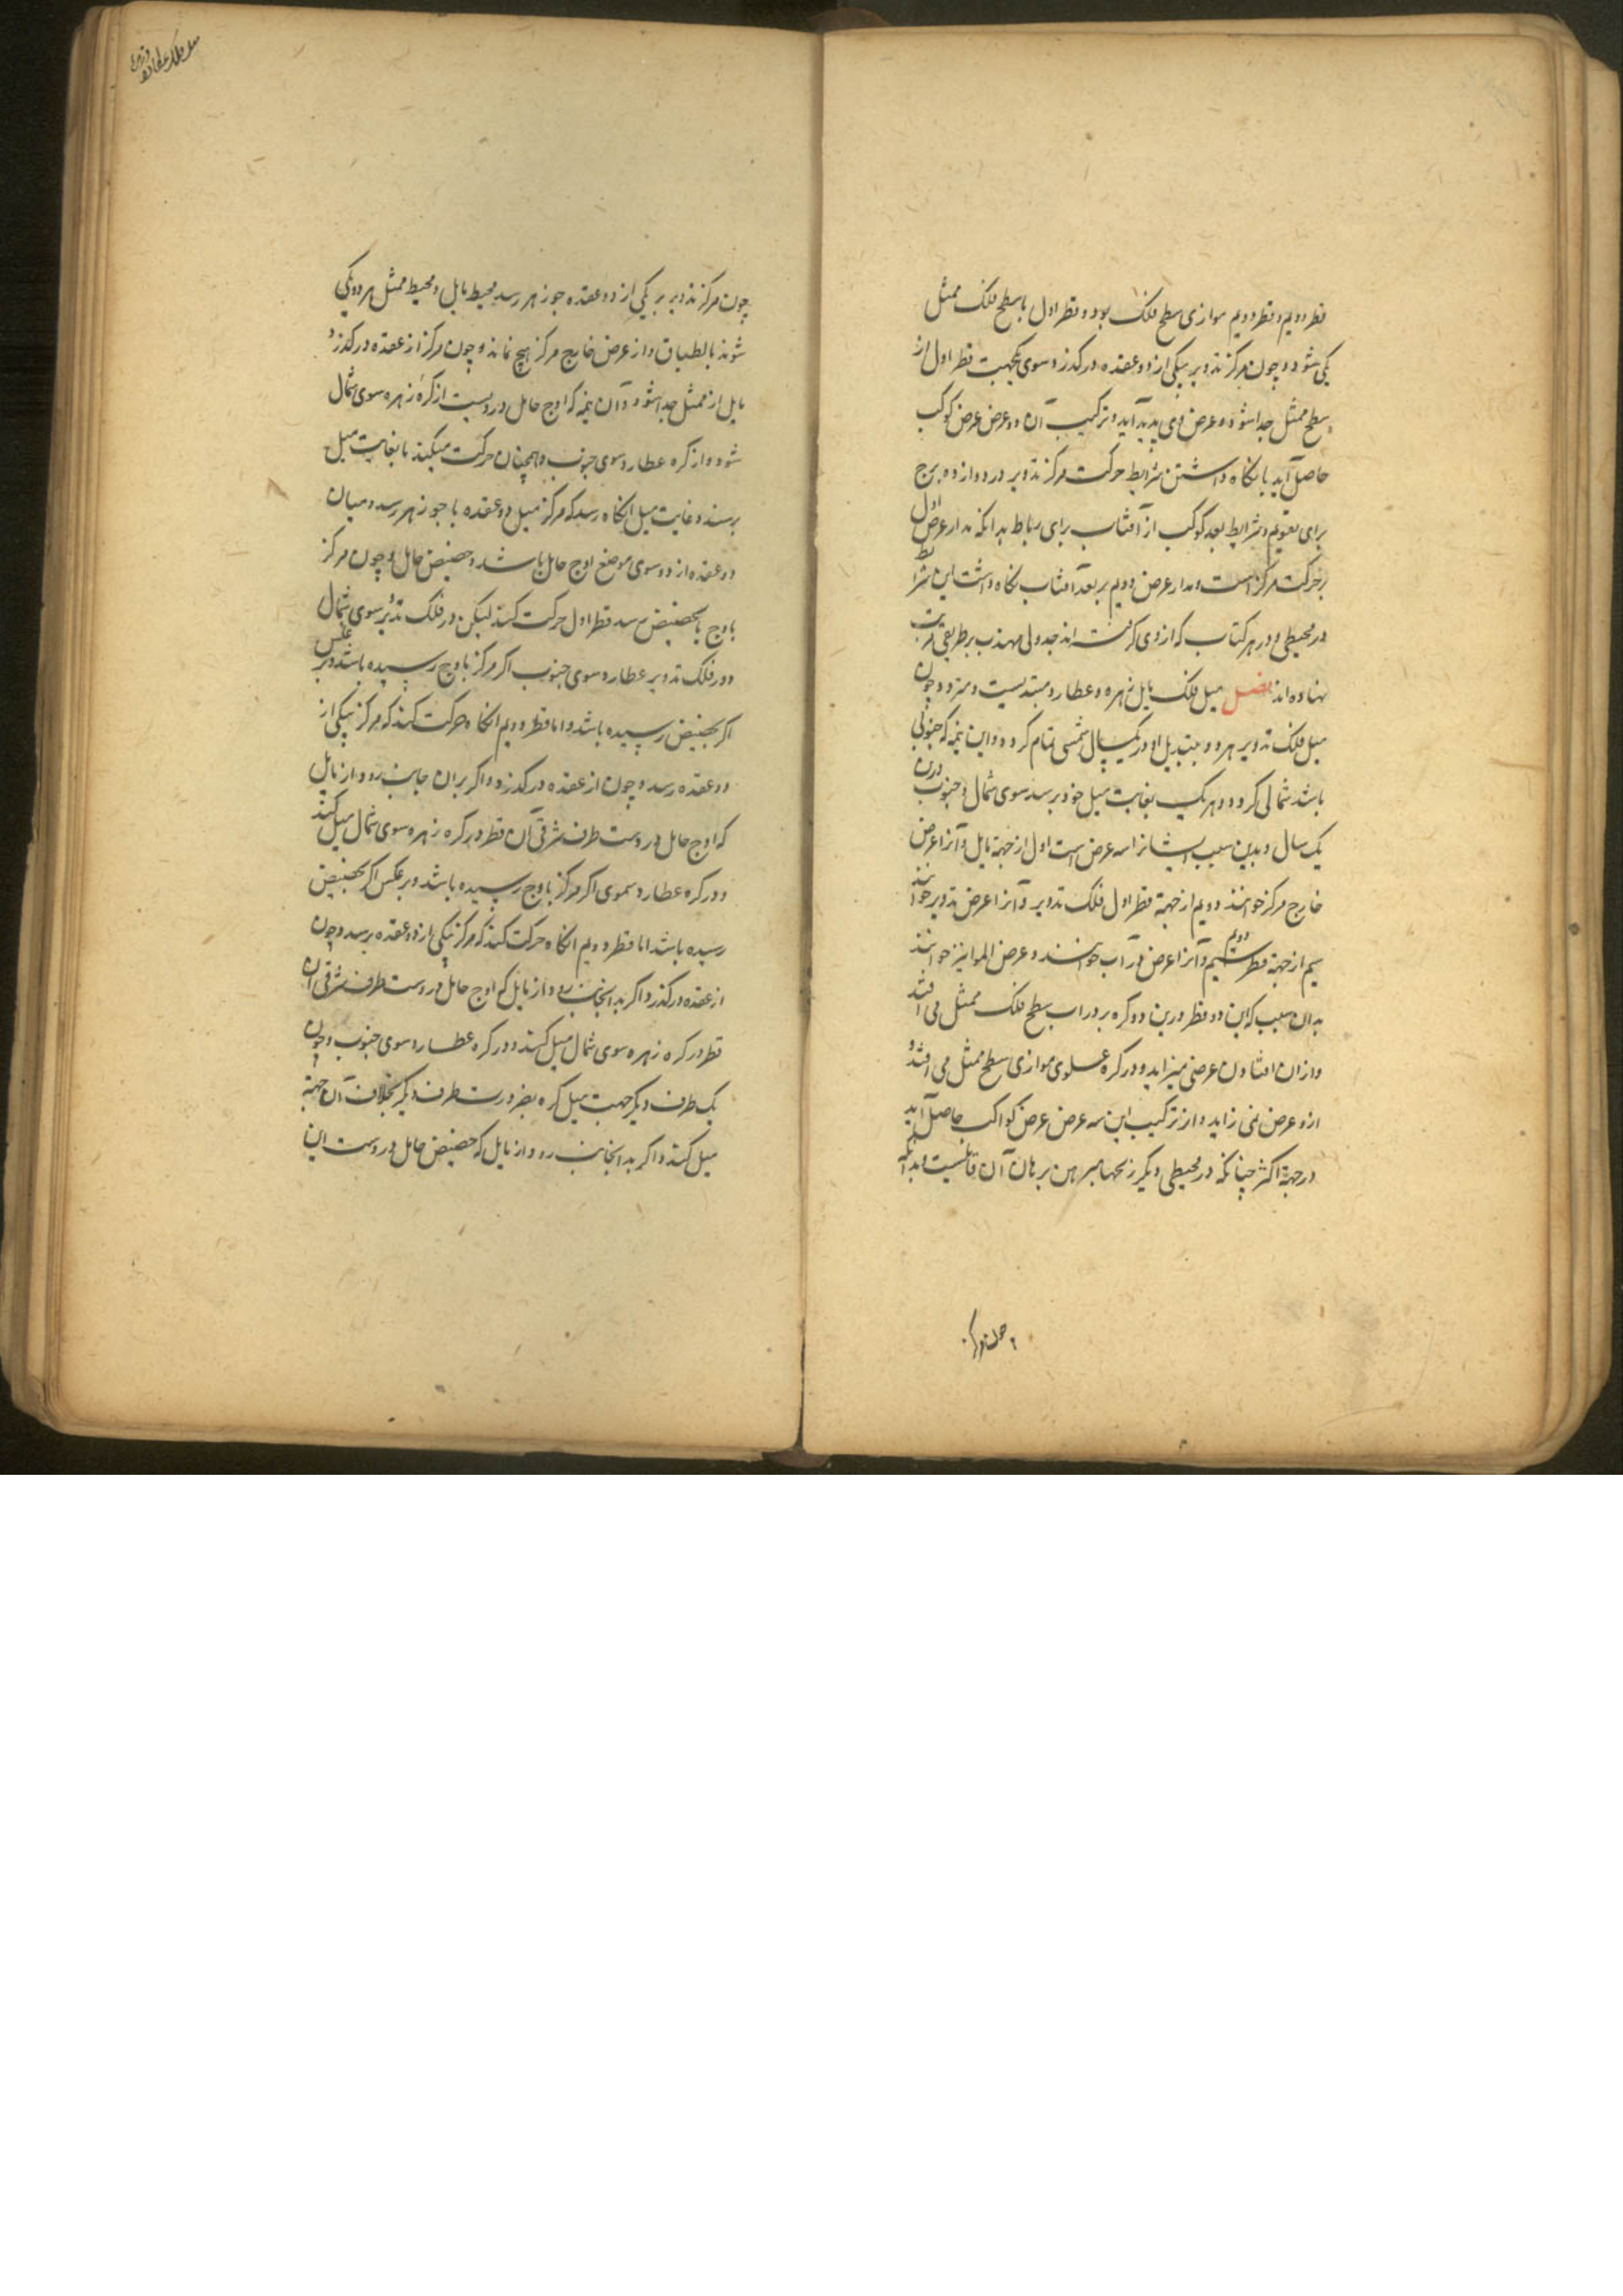 قطر دویم و قطر دویم موازی سطح فلک بود و قطر اول با سطح فلک ممثل
یکی شود و چون مرکز تدویر بیکی از دو عقده درکذرد سوی یکجهت قطر اول از
سطح ممثل جدا شود و عرض وی پدید آید و ترکیب آن دو عرض عرض کوکب
حاصل آید با نکاه داشتن شرایط حرکت مرکز تدویر در دوازده برج
برای تقویم و شرایط بعد کوکب از آفتاب برای رباط بدانکه مدار عرض اول
بر حرکت مرکز است و مدار عرض دویم بر بعد آفتاب نکاه داشت این شرایط
در مجسطی و در هر کتاب که از وی کرفته اند جدولی مهذب بر طریقی
نهاده اند فصل میل فلک مایل زهره و عطارد مبتدیست و متردد چون
میل فلک تدویر هر دو بتبدیل او در یکسال شمسی تمام کردد و این نیمه که جنوبی
باشد شمالی کردد و هر یک بغایت میل خود برسد سوی شمال و جنوب درین
یک سال و بدین سبب ایشانرا سه عرض است اول از جهة مایل و آنرا عرض
خارج مرکز خوانند دویم از جهة قطر اول فلک تدویر و آنرا عرض تدویر خوانند
سیم از جهة قطر دویم و آنرا عرض وراب خوانند و عرض التوا نیز خوانند
بدان سبب که این دو قطر درین دو کره بوراب سطح فلک ممثل می افتد
و ازان افتادن عرضی میزاید و در کره علوی موازی سطح ممثل می افتد و
ازو عرض نمی زاید و از ترکیب این سه عرض عرض کواکب حاصل آید
در جهة اکثر چنانکه در مجسطی و دیکر زیجها مبرهن برهان آن
چون مرکز تدویر بر یکی از دو عقده جوزهر رسد محیط مایل و محیط ممثل هر دو یکی
شوند بانطباق و از عرض خارج مرکز هیچ نماند و چون مرکز از عقده درکذرد
مایل از ممثل جدا شود و آن نیمه که اوج حامل دروست از کرهٔ زهره سوی شمال
شود و از کره عطارد سوی جنوب و همچنان حرکت میکند تا بغایت میل
برسند و غایت میل آنکاه رسد که مرکز میل دو عقده با جوزهر رسد و میان
دو عقده از دو سوی موضع اوج حامل باشد و حضیض حامل و چون مرکز
باوج یا بحضیض رسد قطر اول حرکت کند لیکن در فلک تدویر سوی شمال
و در فلک تدویر عطارد سوی جنوب اکر مرکز باوج رسیده باشد و بر عکس
اکر بحضیض رسیده باشد و اما قطر دویم آنکاه حرکت کند که مرکز بیکی از
دو عقده رسد و چون از عقده درکذرد و اکر بران جانب رود از مایل
که اوج حامل دروست طرف شرقی آن قطر در کره زهره سوی شمال میل کند
و در کره عطارد سوی اکر مرکز باوج رسیده باشد و بر عکس اکر بحضیض
رسیده باشد اما قطر دویم آنکاه حرکت کند که مرکز بیکی از دو عقده برسد و چون
از عقده درکذرد اکر بدانجانب رود از مایل که اوج حامل دروست طرف شرقی آن
قطر در کره زهره سوی شمال میل کند و در کره عطارد سوی جنوب و چون
یک طرف دیکر جهت میل کره بضرورت طرف دیکر بخلاف آن جهة
میل کند و اکر بدانجانب رود از مایل که حضیض حامل دروست این